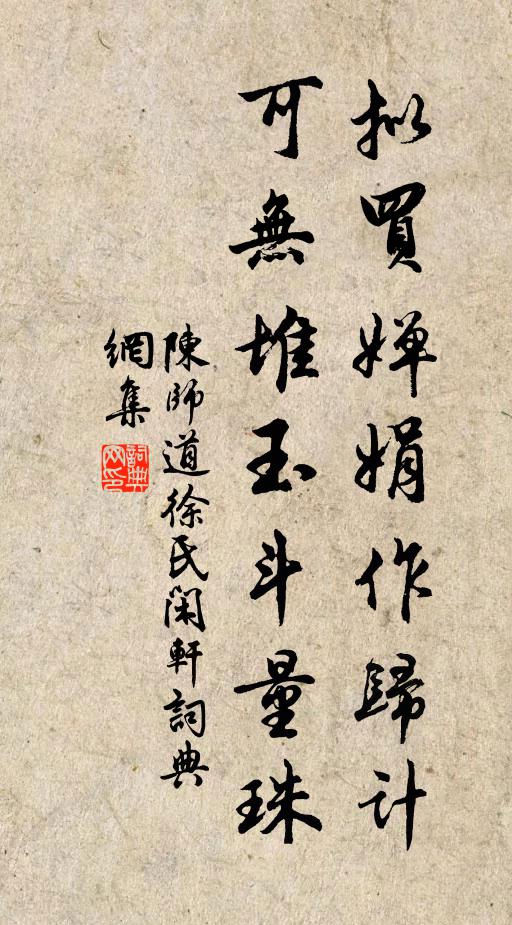 拟買嬋娟作歸計
可無堆玉斗量珠
陳師道徐氏閑軒詞典
網集
詞典網印